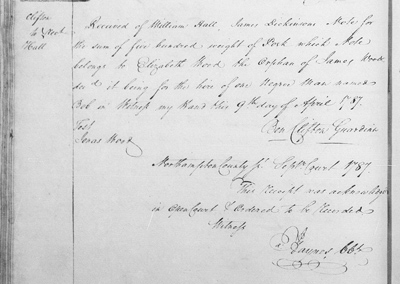 Clifton
to Rect
Hall
Received of William Hall, James Dickinsons Note for
the sum of five hundred weight of Pork which Note
belongs to Elizabeth Wood the Orphan of James Wood
decd it being for the hire of one Negroe Man named
Bob in Witness my Hand this 9th day of April 1787.
Test
Jonas Wood
Ben Clifton Guardian
Northampton County Sc. Septr Court 1787
This Receipt was acknowledged
in Open Court & Ordered to be Recorded
Witness
Haynes CCt